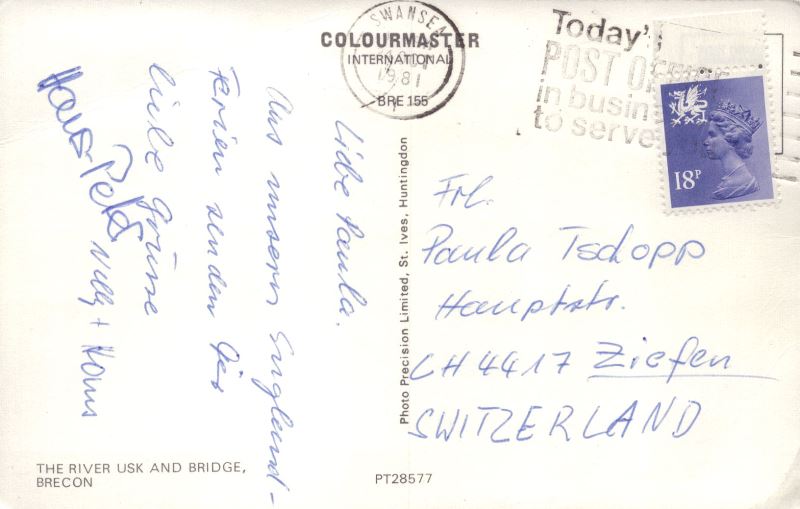 COLOURMASTER
INTERNATIONAL
BRE 155
SWANSEA
1981
Today's
POST OFFICE
in busin
to serve
18P
Liebe Paula.
Aus unsern England-
Ferien senden Dir
liebe Grüsse
Hans-Peter
Nelly + Hans
Photo Precision Limited, St. Ives, Huntingdon
Frl.
Paula Tschopp
Hauptstr.
CH 4417 Ziefen
SWITZERLAND
THE RIVER USK AND BRIDGE,
BRECON
PT28577